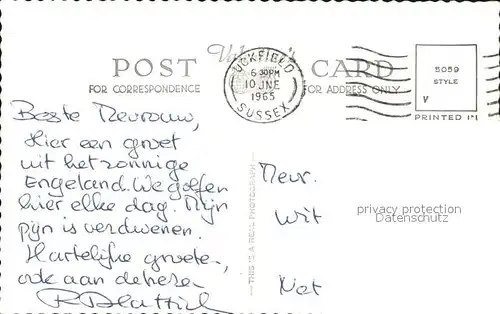 Valentine's
POST CARD
FOR CORRESPONDENCE
FOR ADDRESS ONLY
UCKFIELD
6 30PM
10 JNE
1965
SUSSEX
5059
STYLE
V
PRINTED IN
Beste Mevrouw,
Hier een groet
uit het zonnige
Engeland. We golfen
hier elke dag. Mijn
pijn is verdwenen.
Hartelijke groeten,
ook aan de heer
THIS IS A REAL PHOTOGRAPH
Mevr.
Wit
privacy protection
Datenschutz